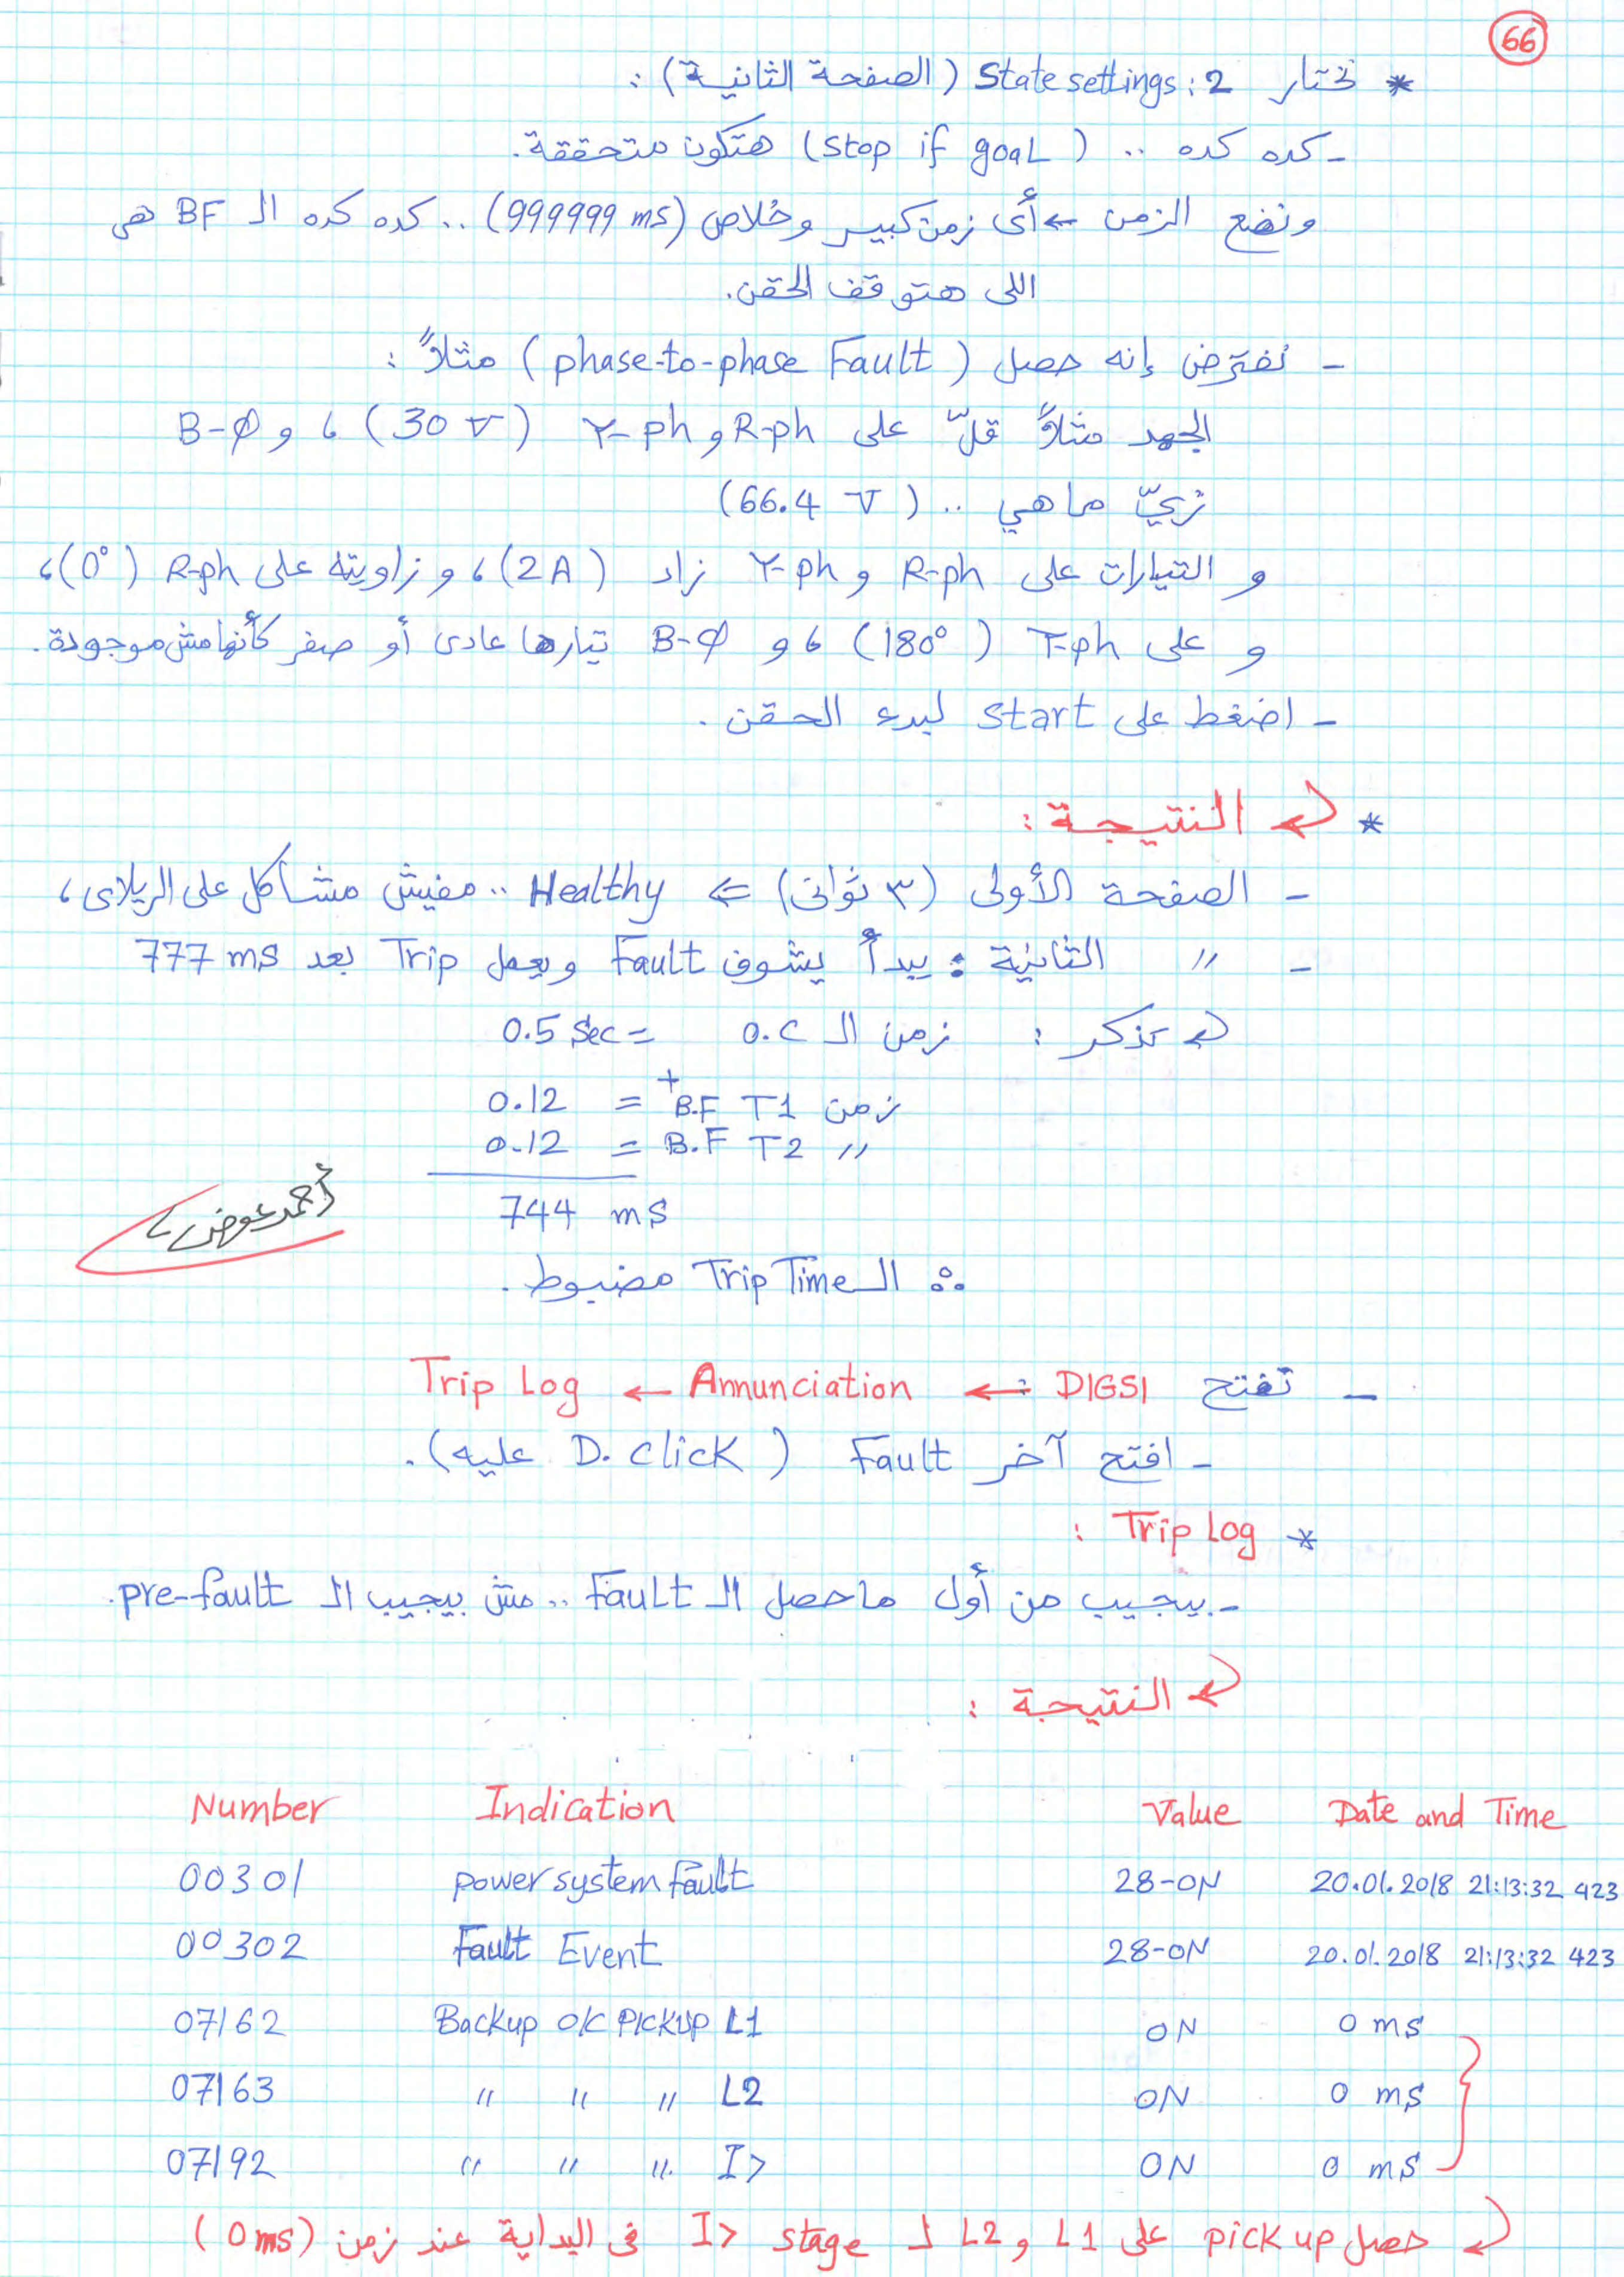 66
* نختار State settings: 2 (الصفحة الثانية) :
- كده كده .. (stop if goal) هتكون متحققة.
ونضع الزمن ← أى زمن كبير وخلاص (999999 ms) .. كده كده الـ BF هى
اللى هتوقف الحقن.
- نفترض إنه حصل (phase-to-phase Fault) مثلاً :
الجهد مثلاً قلّ على R-ph و Y-ph (30 V) ، و B-Ø
زىّ ما هي .. (66.4 V)
و التيارات على R-ph و Y-ph زاد (2A) ، و زاويته على R-ph (0°) ،
و على Y-ph (180°) ، و B-Ø تيارها عادى أو صفر كأنها مش موجودة.
- اضغط على start لبدء الحقن .
* النتيجة :
- الصفحة الأولى (٣ ثوانى) ⇐ Healthy .. مفيش مشاكل على الريلاى ،
- " الثانية : يبدأ يشوف Fault ويعمل Trip بعد 777 ms
تذكر : زمن الـ O.C = 0.5 Sec
+
زمن B.F T1 = 0.12
" B.F T2 = 0.12
744 ms
أحمد عوض
∴ الـ Trip Time مضبوط .
- تفتح DIGSI ← Annunciation ← Trip Log
- افتح آخر Fault (D. click عليه) .
* Trip Log :
- بيجيب من أول ما حصل الـ Fault .. مش بيجيب الـ pre-fault.
النتيجة :
Number Indication Value Date and Time
00301 power system fault 28-ON 20.01.2018 21:13:32 423
00302 Fault Event 28-ON 20.01.2018 21:13:32 423
07162 Backup O/C PICKUP L1 ON 0 ms
07163 " " " L2 ON 0 ms
07192 " " " I> ON 0 ms
حصل pick up على L1 و L2 لـ stage I> فى البداية عند زمن (0 ms)